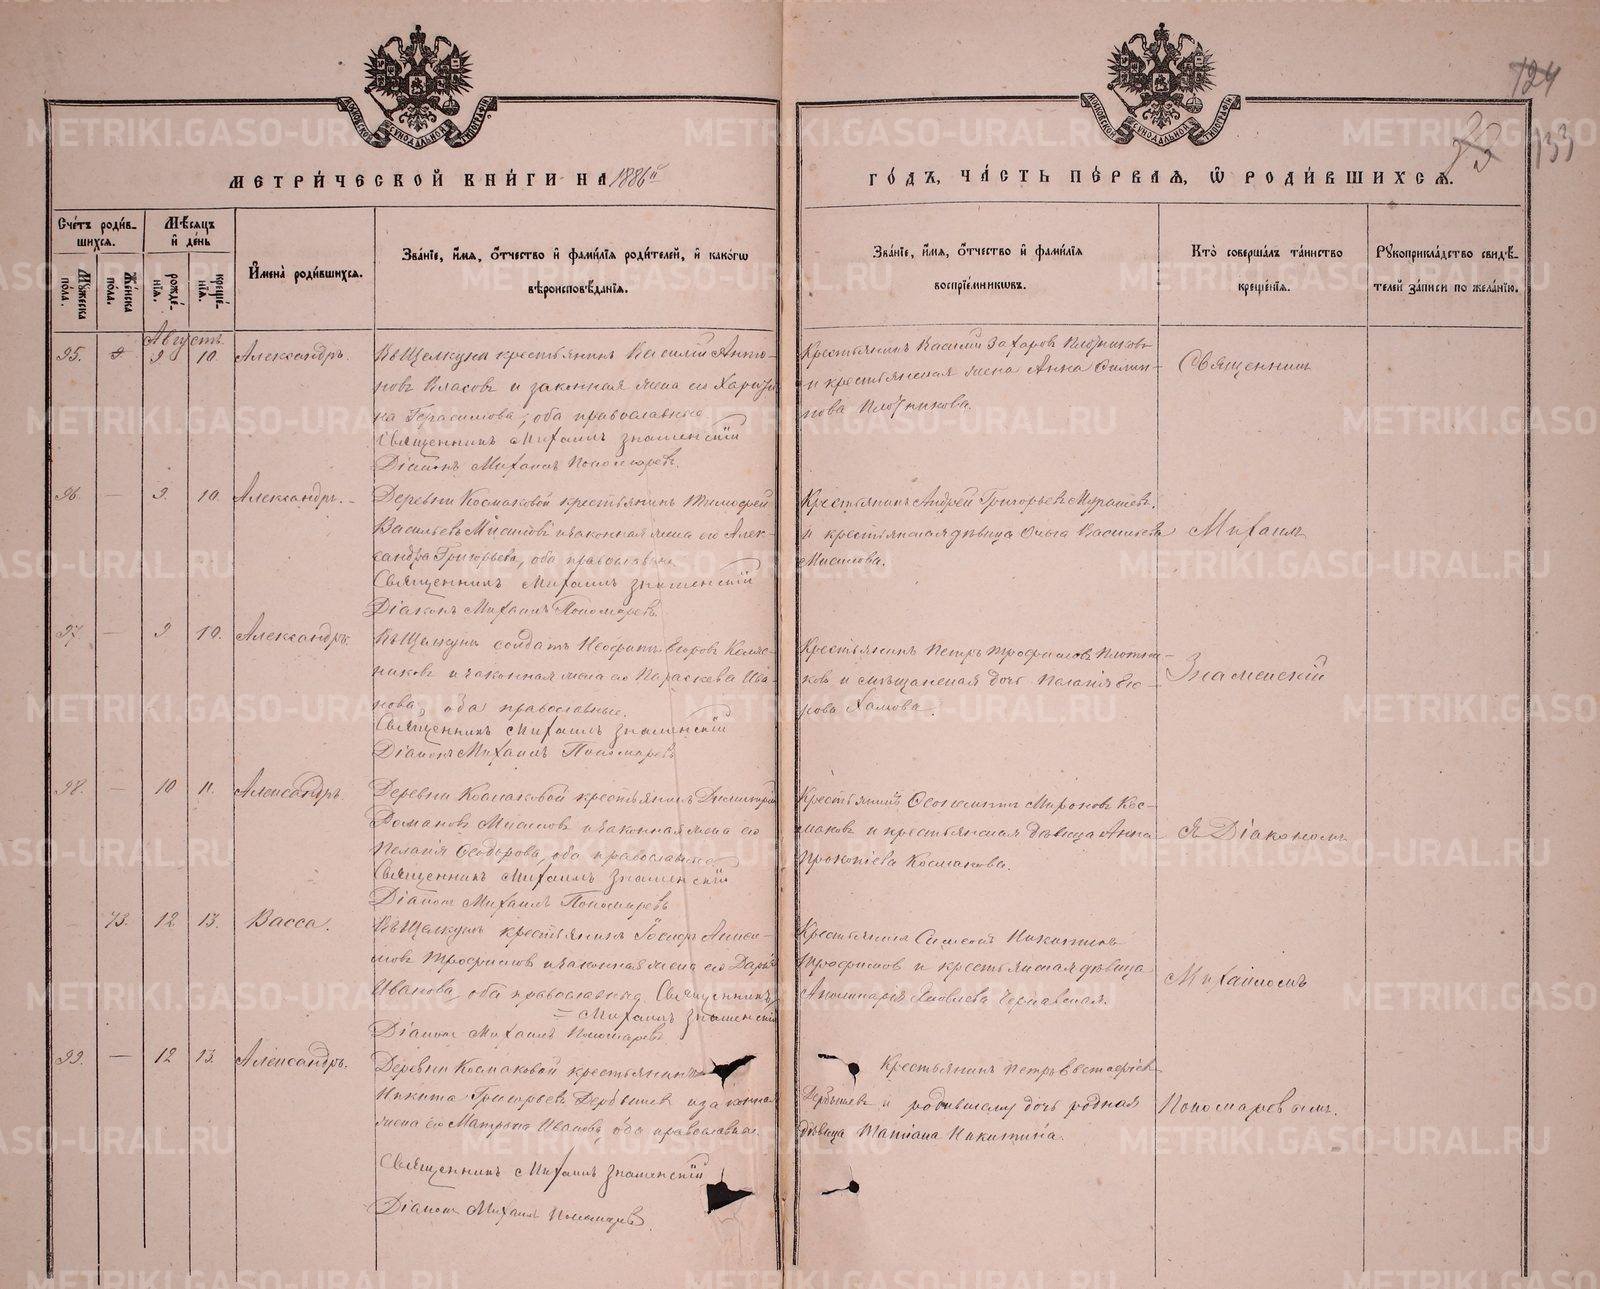 124
133
МЕТРИ́ЧЕСКОЙ КНИ́ГИ НА 1886й
ГО́ДЪ, ЧА́СТЬ ПЕ́РВАЯ, Ѡ РОДИ́ВШИХСѦ.
Сче́тъ роди́в-
шихся.
Мѣ́сяцъ
и́ де́нь
Мꙋ́жеска
по́ла.
Же́нска
по́ла.
рожде́-
нїя.
креще́-
нїя.
И́мена̀ роди́вшихся.
Зва́нїе, и́мя, ѻ҆́тчество и́ фами́лїя роди́телей, и́ како́гѡ
вѣроисповѣ́данїя.
Зва́нїе, и́мя, ѻ҆́тчество и́ фами́лїя
воспрїе́мникѡвъ.
Кто̀ соверша́лъ та́инство
креще́нїя.
Рꙋкоприкла́дство свидѣ́-
телей за́писи по жела́нїю.
Августъ
95. 9 10. Александръ.
Въ Щелкунѣ крестьянинъ Василій Анто-
новъ Власовъ и законная жена его Харити-
на Герасимова, оба православные
Священникъ Михаилъ Знаменскій
Діаконъ Михаилъ Пономаревъ.
Крестьянинъ Василій Захаровъ Плотниковъ
и крестьянская жена Анна Филип-
пова Плотникова.
Священникъ
96. — 9. 10. Александръ. —
Деревни Космаковой крестьянинъ Тимофей
Васильевъ Мисиловъ и законная жена его Алек-
сандра Григорьева, оба православные
Священникъ Михаилъ Знаменскій
Діаконъ Михаилъ Пономаревъ.
Крестьянинъ Андрей Григорьевъ
и крестьянская дѣвица Ольга Васильева
Мисилова.
Михаилъ
97. — 9 10. Александръ.
Въ Щелкунѣ солдатъ Неофитъ Егоровъ Коляс-
никовъ и законная жена его Параскева Ива-
нова, оба православные.
Священникъ Михаилъ Знаменскій
Діаконъ Михаилъ Пономаревъ
Крестьянинъ Петръ Трофимовъ Плотни-
ковъ и мѣщанская дочь Пелагія Его-
рова
Знаменскій
98. — 10 11. Александръ.
Деревни Космаковой крестьянинъ Димитрій
Романовъ Мисиловъ и законная жена его
Пелагія Ѳеодорова, оба православные
Священникъ Михаилъ Знаменскій
Діаконъ Михаилъ Пономаревъ
Крестьянинъ Мироновъ Кос-
маковъ и крестьянская дѣвица Анна
Прокопіева Космакова.
съ Діакономъ
73. 12 13. Васса.
Въ Щелкунѣ крестьянинъ
Трофимовъ и законная жена его Дарья
Иванова, оба православные. Священникъ
= Михаилъ Знаменскій
Діаконъ Михаилъ Пономаревъ
Крестьянинъ Симеонъ Никитинъ
Трофимовъ и крестьянская дѣвица
Аполинарія Яковлева Чернавская.
Михаиломъ
99. — 12 13. Александръ.
Деревни Космаковой крестьянинъ
Никита Григорьевъ Дербышевъ и законная
жена его Матрона Иванова, оба православные.
Священникъ Михаилъ Знаменскій
Діаконъ Михаилъ Пономаревъ.
Крестьянинъ Петръ Евстафіевъ
Дербышевъ и родившему дочь родная
дѣвица Татіана Никитина.
Пономаревымъ.
METRIKI.GASO-URAL.RU